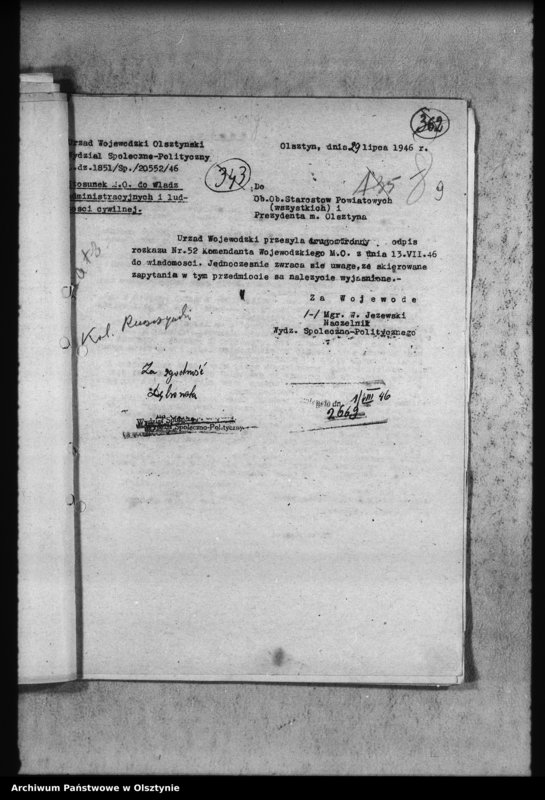 362
Urzad Wojewodzki Olsztynski
Wydzial Spoleczno-Polityczny
L.dz.1851/Sp./20552/46
Olsztyn, dnia 29 lipca 1946 r.
343
485
8
9
Stosunek M.O. do Wladz
administracyjnych i lud-
nosci cywilnej.
Do
Ob.Ob.Starostow Powiatowych
(wszystkich) i
Prezydenta m. Olsztyna
Urzad Wojewodzki przesyla drugostronny odpis
rozkazu Nr.52 Komendanta Wojewodzkiego M.O. z dnia 13.VII.46
do wiadomosci. Jednoczesnie zwraca sie uwage,ze skierowane
zapytania w tym przedmiocie sa nalezycie wyjasnione.-
Za Wojewode
/-/ Mgr. W. Jezewski
Naczelnik
Wydz. Spoleczno-Politycznego
Kol.
Za zgodność
dn. 1/VIII 46
2669
Społeczno-Polityczny
Archiwum Państwowe w Olsztynie